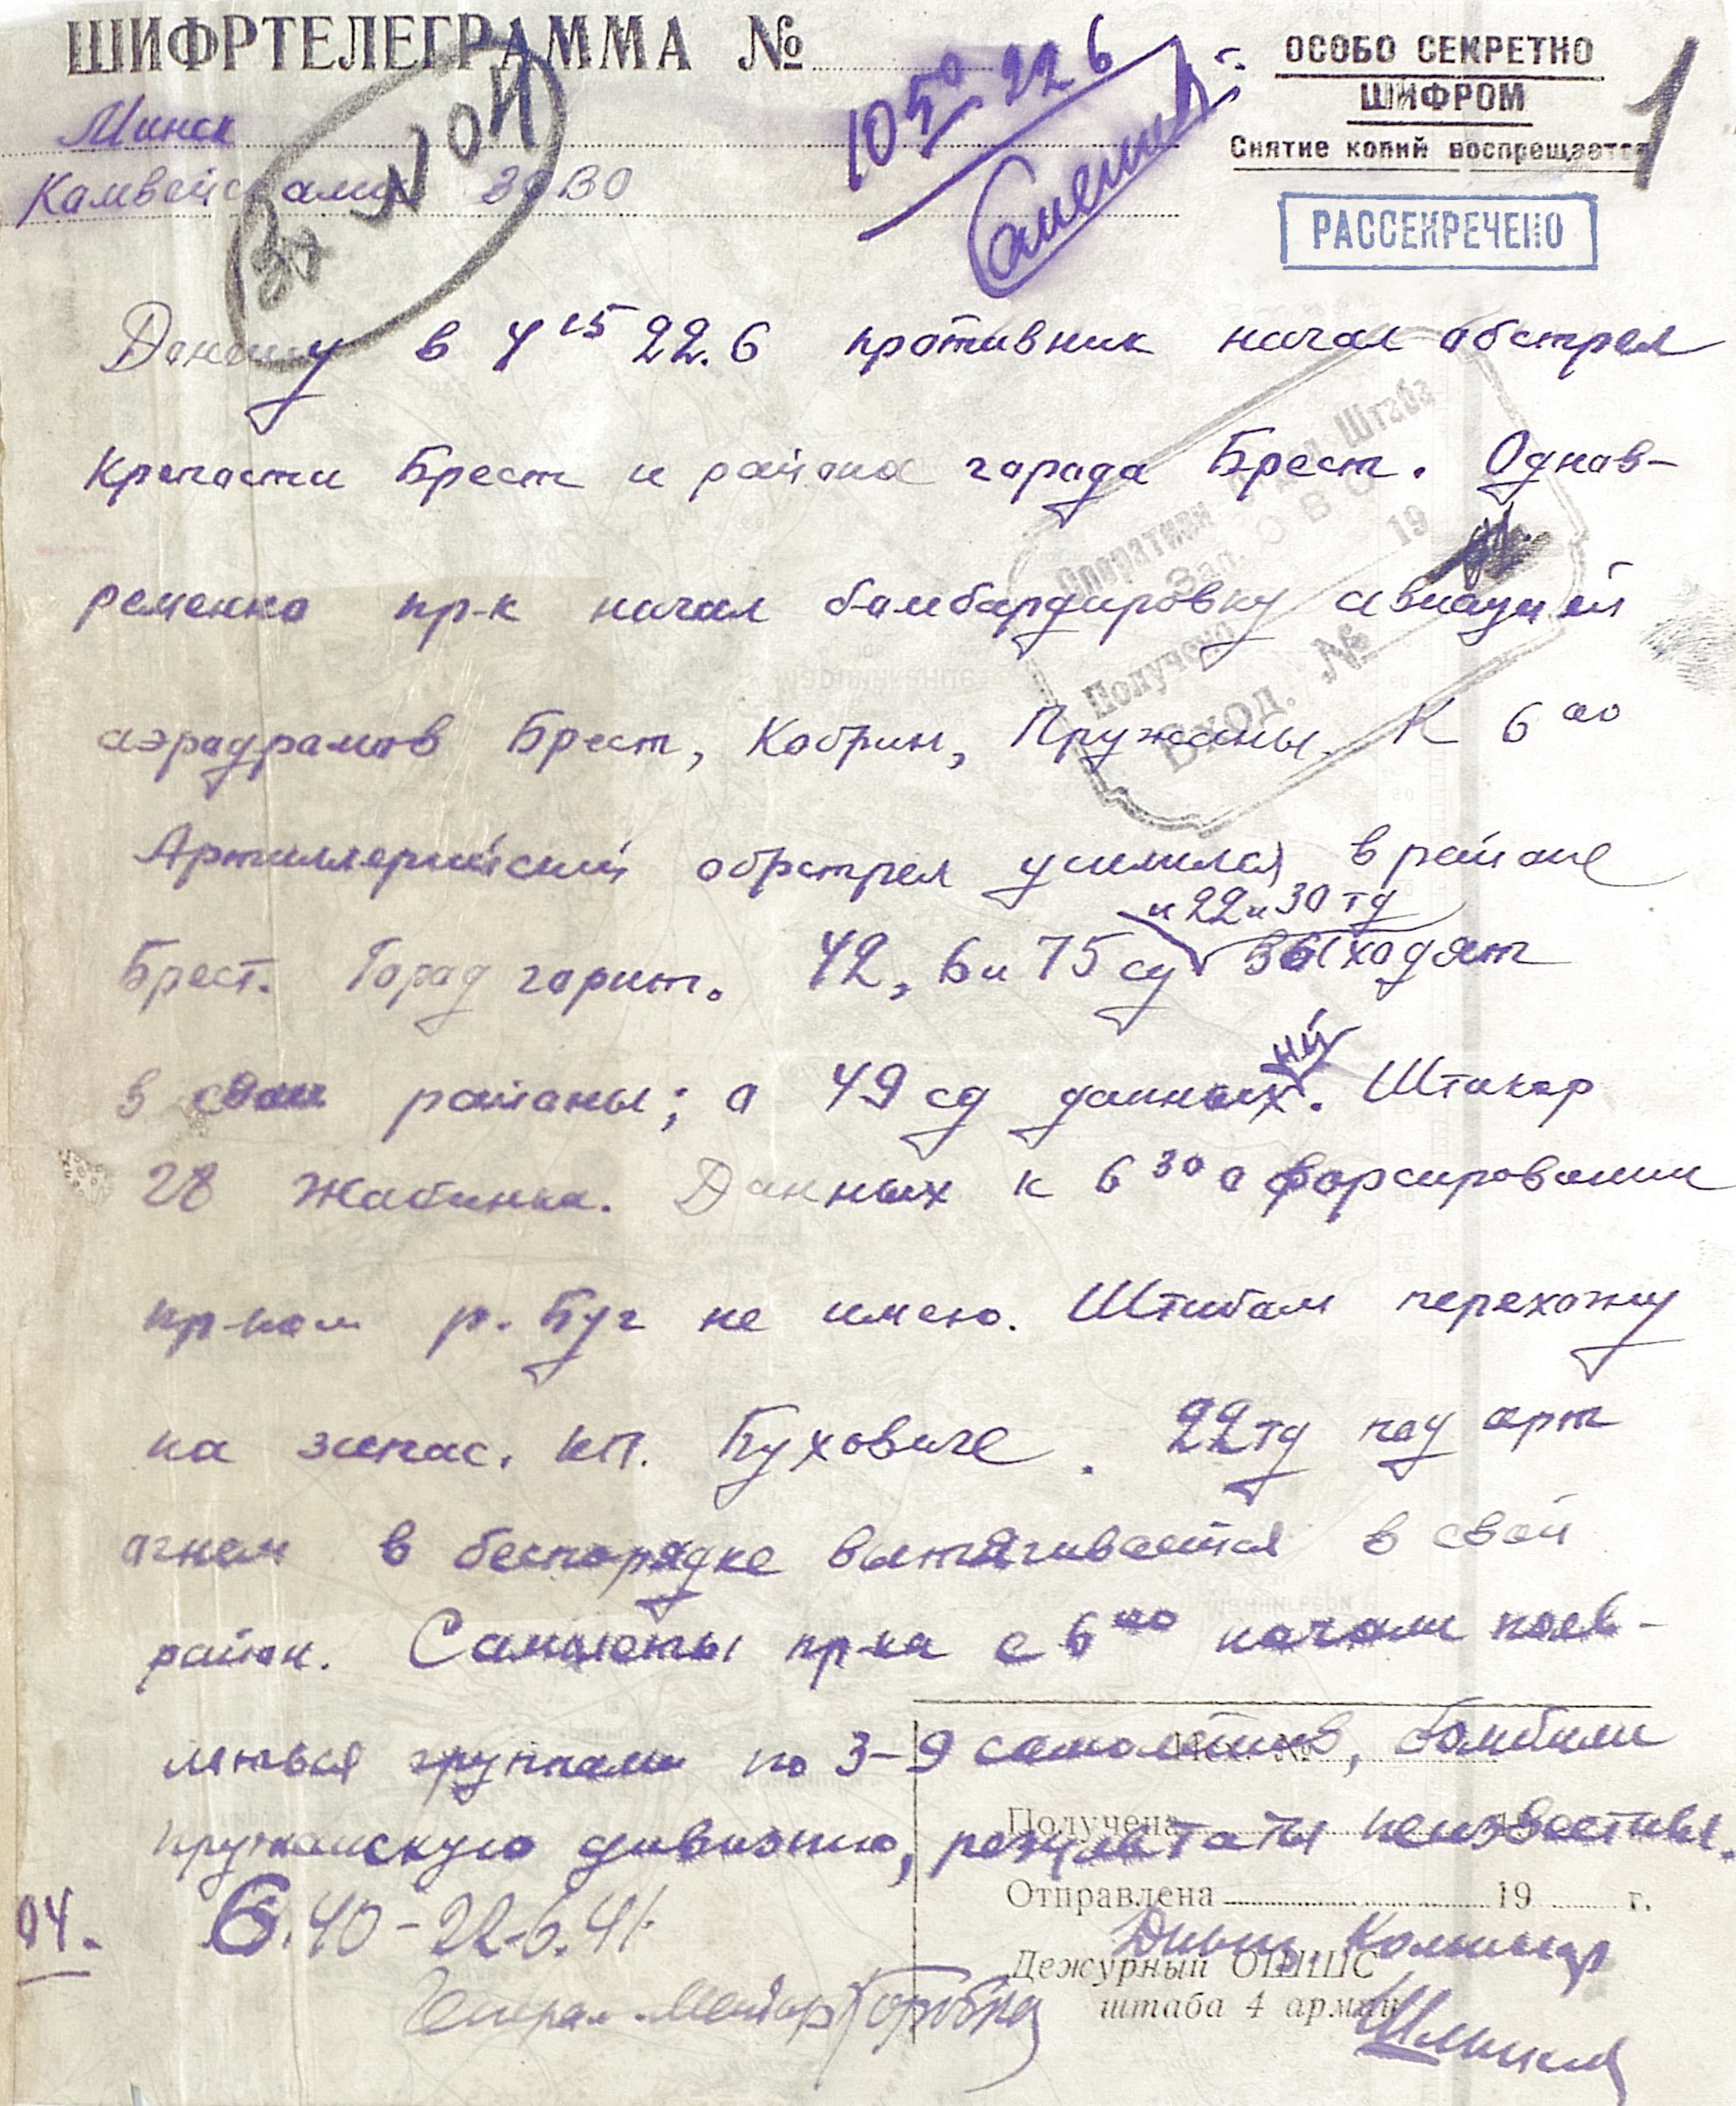 ШИФРТЕЛЕГРАММА №
10 50 22 6
ОСОБО СЕКРЕТНО
ШИФРОМ
Снятие копий воспрещается
1
РАССЕКРЕЧЕНО
Минск
ЗапОВО
Доношу в 4 15 22.6 противник начал обстрел
крепости Брест и района города Брест. Однов-
ременно пр-к начал бомбардировку авиацией
аэродромов Брест, Кобрин, Пружаны. К 6 00
Артиллерийский обстрел усилился в районе
Брест. Город горит. 42, 6 и 75 сд и 22 и 30 тд выходят
в свои районы; о 49 сд данных нет. Штакор
28 Жабинка. Данных к 6 30 о форсировании
пр-ком р. Буг не имею. Штабом перехожу
на запас. кп. Буховиче. 22 тд под арт
огнем в беспорядке вытягивается в свой
район. Самолеты пр-ка с 6 00 начали появ-
ляться группами по 3-9 самолетов, бомбили
пружанскую дивизию, результаты неизвестны.
04.
6.40 - 22.6.41.
Генерал-майор Коробков
Дивиз. Комиссар
Шлыков
Оперативн. отдел Штаба
Зап. ОВО
Получено 19
Вход. №
Получена
Отправлена 19 г.
Дежурный ОШШС
штаба 4 армии